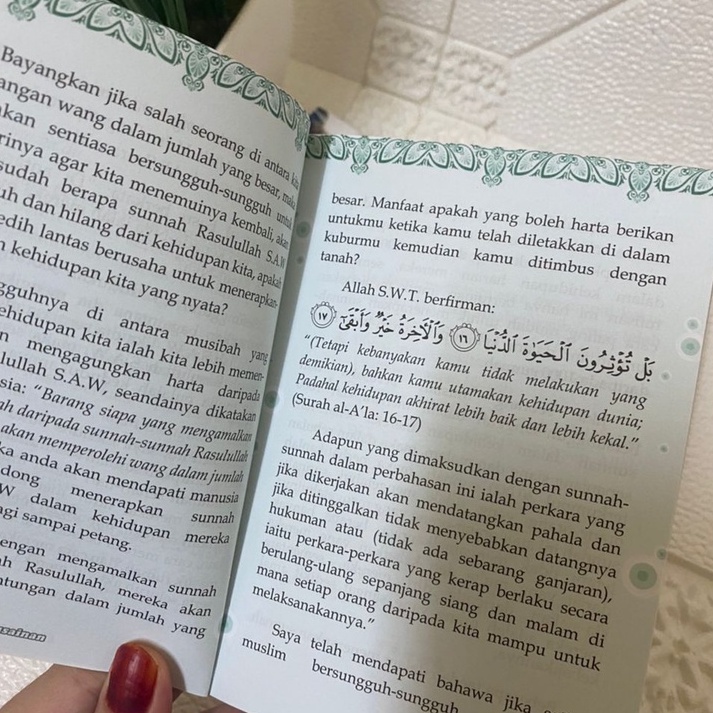 Bayangkan jika salah seorang di antara
angan wang dalam jumlah yang besar,
akan sentiasa bersungguh-sungguh
rinya agar kita menemuinya kembali,
sudah berapa sunnah Rasulullah S.A.W
uh dan hilang dari kehidupan kita,
edih lantas berusaha untuk menerapkan-
kehidupan kita yang nyata?
gguhnya di antara musibah yang
ehidupan kita ialah kita lebih memen-
n mengagungkan harta daripada
lullah S.A.W, seandainya dikatakan
sia: "Barang siapa yang mengamalkan
ah daripada sunnah-sunnah Rasulullah
akan memperolehi wang dalam jumlah
ka anda akan mendapati manusia
dong menerapkan sunnah
W dalam kehidupan mereka
agi sampai petang.
engan mengamalkan sunnah
ah Rasulullah, mereka akan
ntungan dalam jumlah yang
besar. Manfaat apakah yang boleh harta berikan
untukmu ketika kamu telah diletakkan di dalam
kuburmu kemudian kamu ditimbus dengan
tanah?
Allah S.W.T. berfirman:
بَلْ تُؤْثِرُونَ ٱلْحَيَوٰةَ ٱلدُّنْيَا ١٦ وَٱلْأَخِرَةُ خَيْرٌ وَأَبْقَىٰٓ ١٧
"(Tetapi kebanyakan kamu tidak melakukan yang
demikian), bahkan kamu utamakan kehidupan dunia;
Padahal kehidupan akhirat lebih baik dan lebih kekal."
(Surah al-A'la: 16-17)
Adapun yang dimaksudkan dengan sunnah-
sunnah dalam perbahasan ini ialah perkara yang
jika dikerjakan akan mendatangkan pahala dan
jika ditinggalkan tidak menyebabkan datangnya
hukuman atau (tidak ada sebarang ganjaran),
iaitu perkara-perkara yang kerap berlaku secara
berulang-ulang sepanjang siang dan malam di
mana setiap orang daripada kita mampu untuk
melaksanakannya."
Saya telah mendapati bahawa jika
muslim bersungguh-sungguh